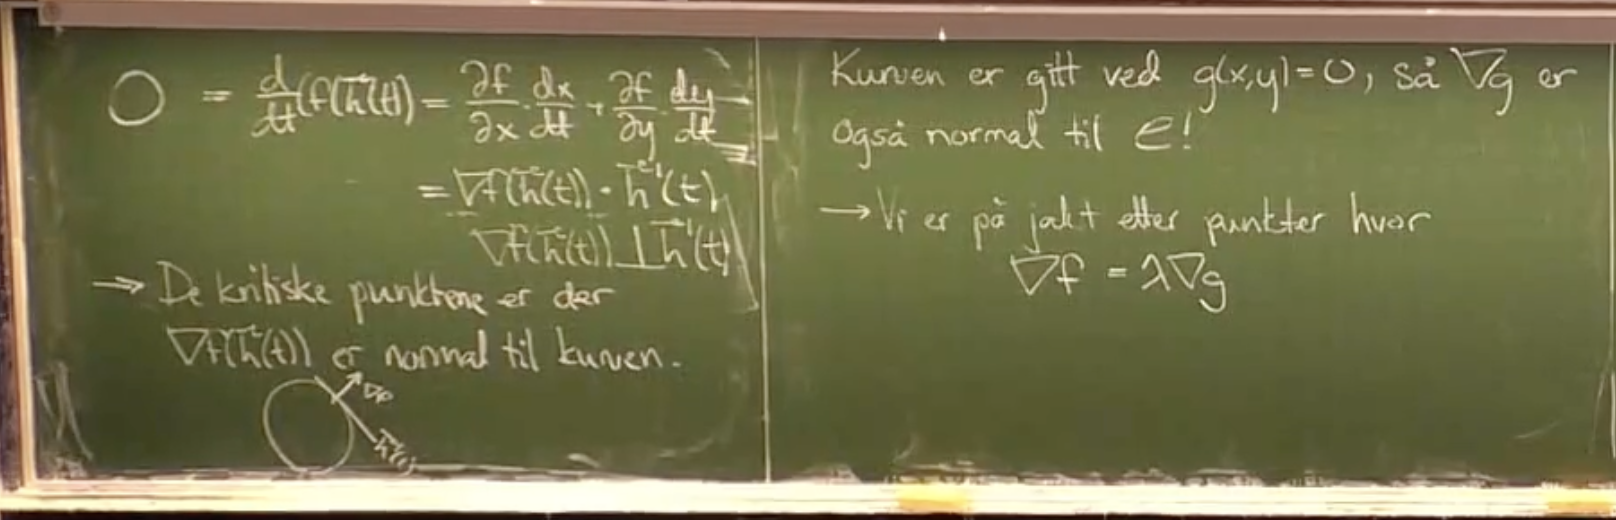 0 = d/dt(f(h⃗(t)) = ∂f/∂x · dx/dt + ∂f/∂y · dy/dt
= ∇f(h⃗(t)) · h⃗'(t)
∇f(h⃗(t)) ⊥ h⃗'(t)
→ De kritiske punktene er der
∇f(h⃗(t)) er normal til kurven.
∇f
h⃗'(t)
Kurven er gitt ved g(x,y)=0, så ∇g er
også normal til C!
→ Vi er på jakt etter punkter hvor
∇f = λ∇g